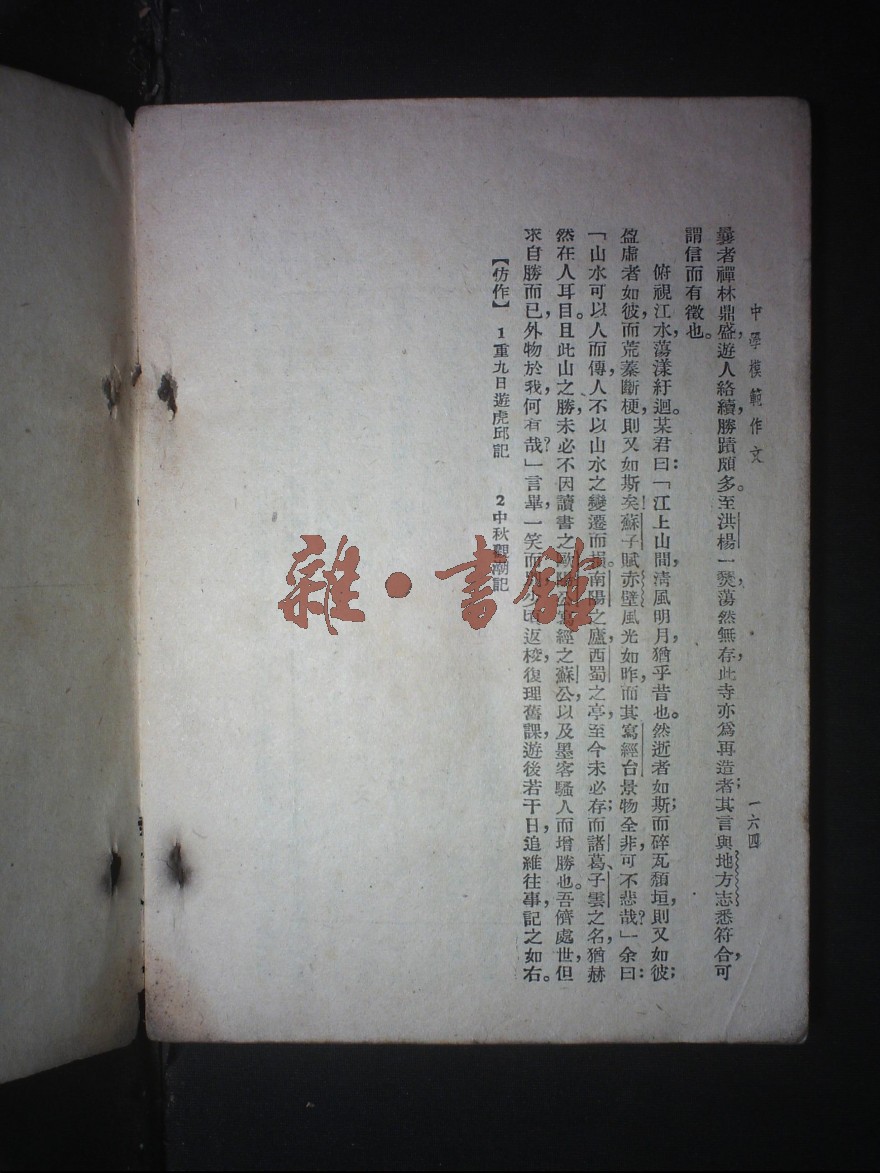 中學模範作文
一六四
曩者禪林鼎盛,遊人絡續,勝蹟頗多。至洪楊一燹,蕩然無存,此寺亦爲再造者;其言與地方志悉符合,可
謂信而有徵也。
俯視江水,蕩漾紆迴。某君曰:「江上山間,淸風明月,猶乎昔也。然逝者如斯;而碎瓦頹垣,則又如彼;
盈虛者如彼,而荒蓁斷梗,則又如斯矣!蘇子賦赤壁,風光如昨,而其寫經台景物全非,可不悲哉?」余曰:
「山水可以人而傳,人不以山水之變遷而損。南陽之廬,西蜀之亭,至今未必存;而諸葛、子雲之名,猶赫
然在人耳目。且此山之勝,未必不因讀書之歐陽公,寫經之蘇公,以及墨客騷人而增勝也。吾儕處世,但
求自勝而已,外物於我何有哉?」言畢,一笑而別。少頃返校,復理舊課,遊後若干日,追維往事,記之如右。
【仿作】 1重九日遊虎邱記 2中秋觀潮記
雜·書館